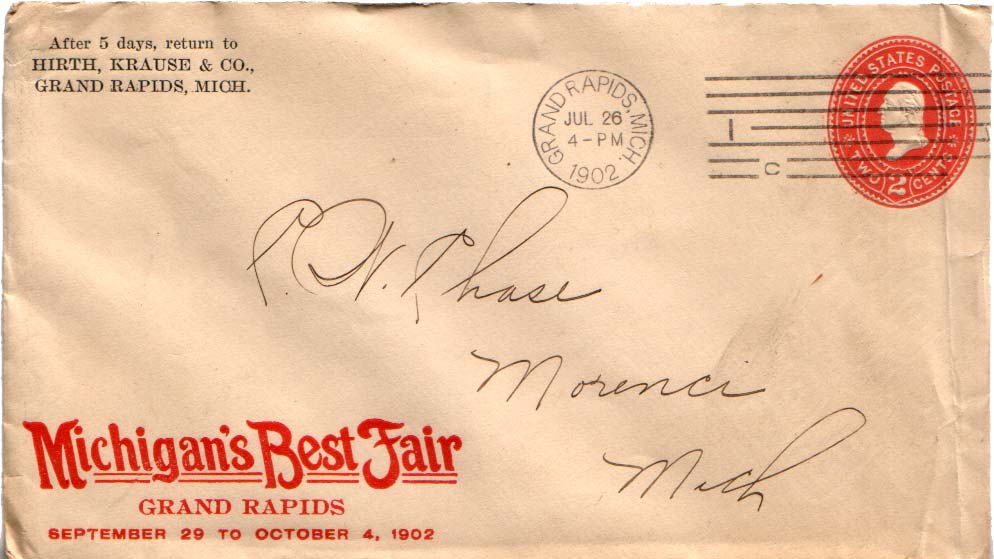 After 5 days, return to
HIRTH, KRAUSE & CO.,
GRAND RAPIDS, MICH.
GRAND RAPIDS, MICH.
JUL 26
4-PM
1902
I
C
UNITED STATES POSTAGE
TWO 2 CENTS
W. Chase
Morenci
Mich
Michigan's Best Fair
GRAND RAPIDS
SEPTEMBER 29 TO OCTOBER 4, 1902